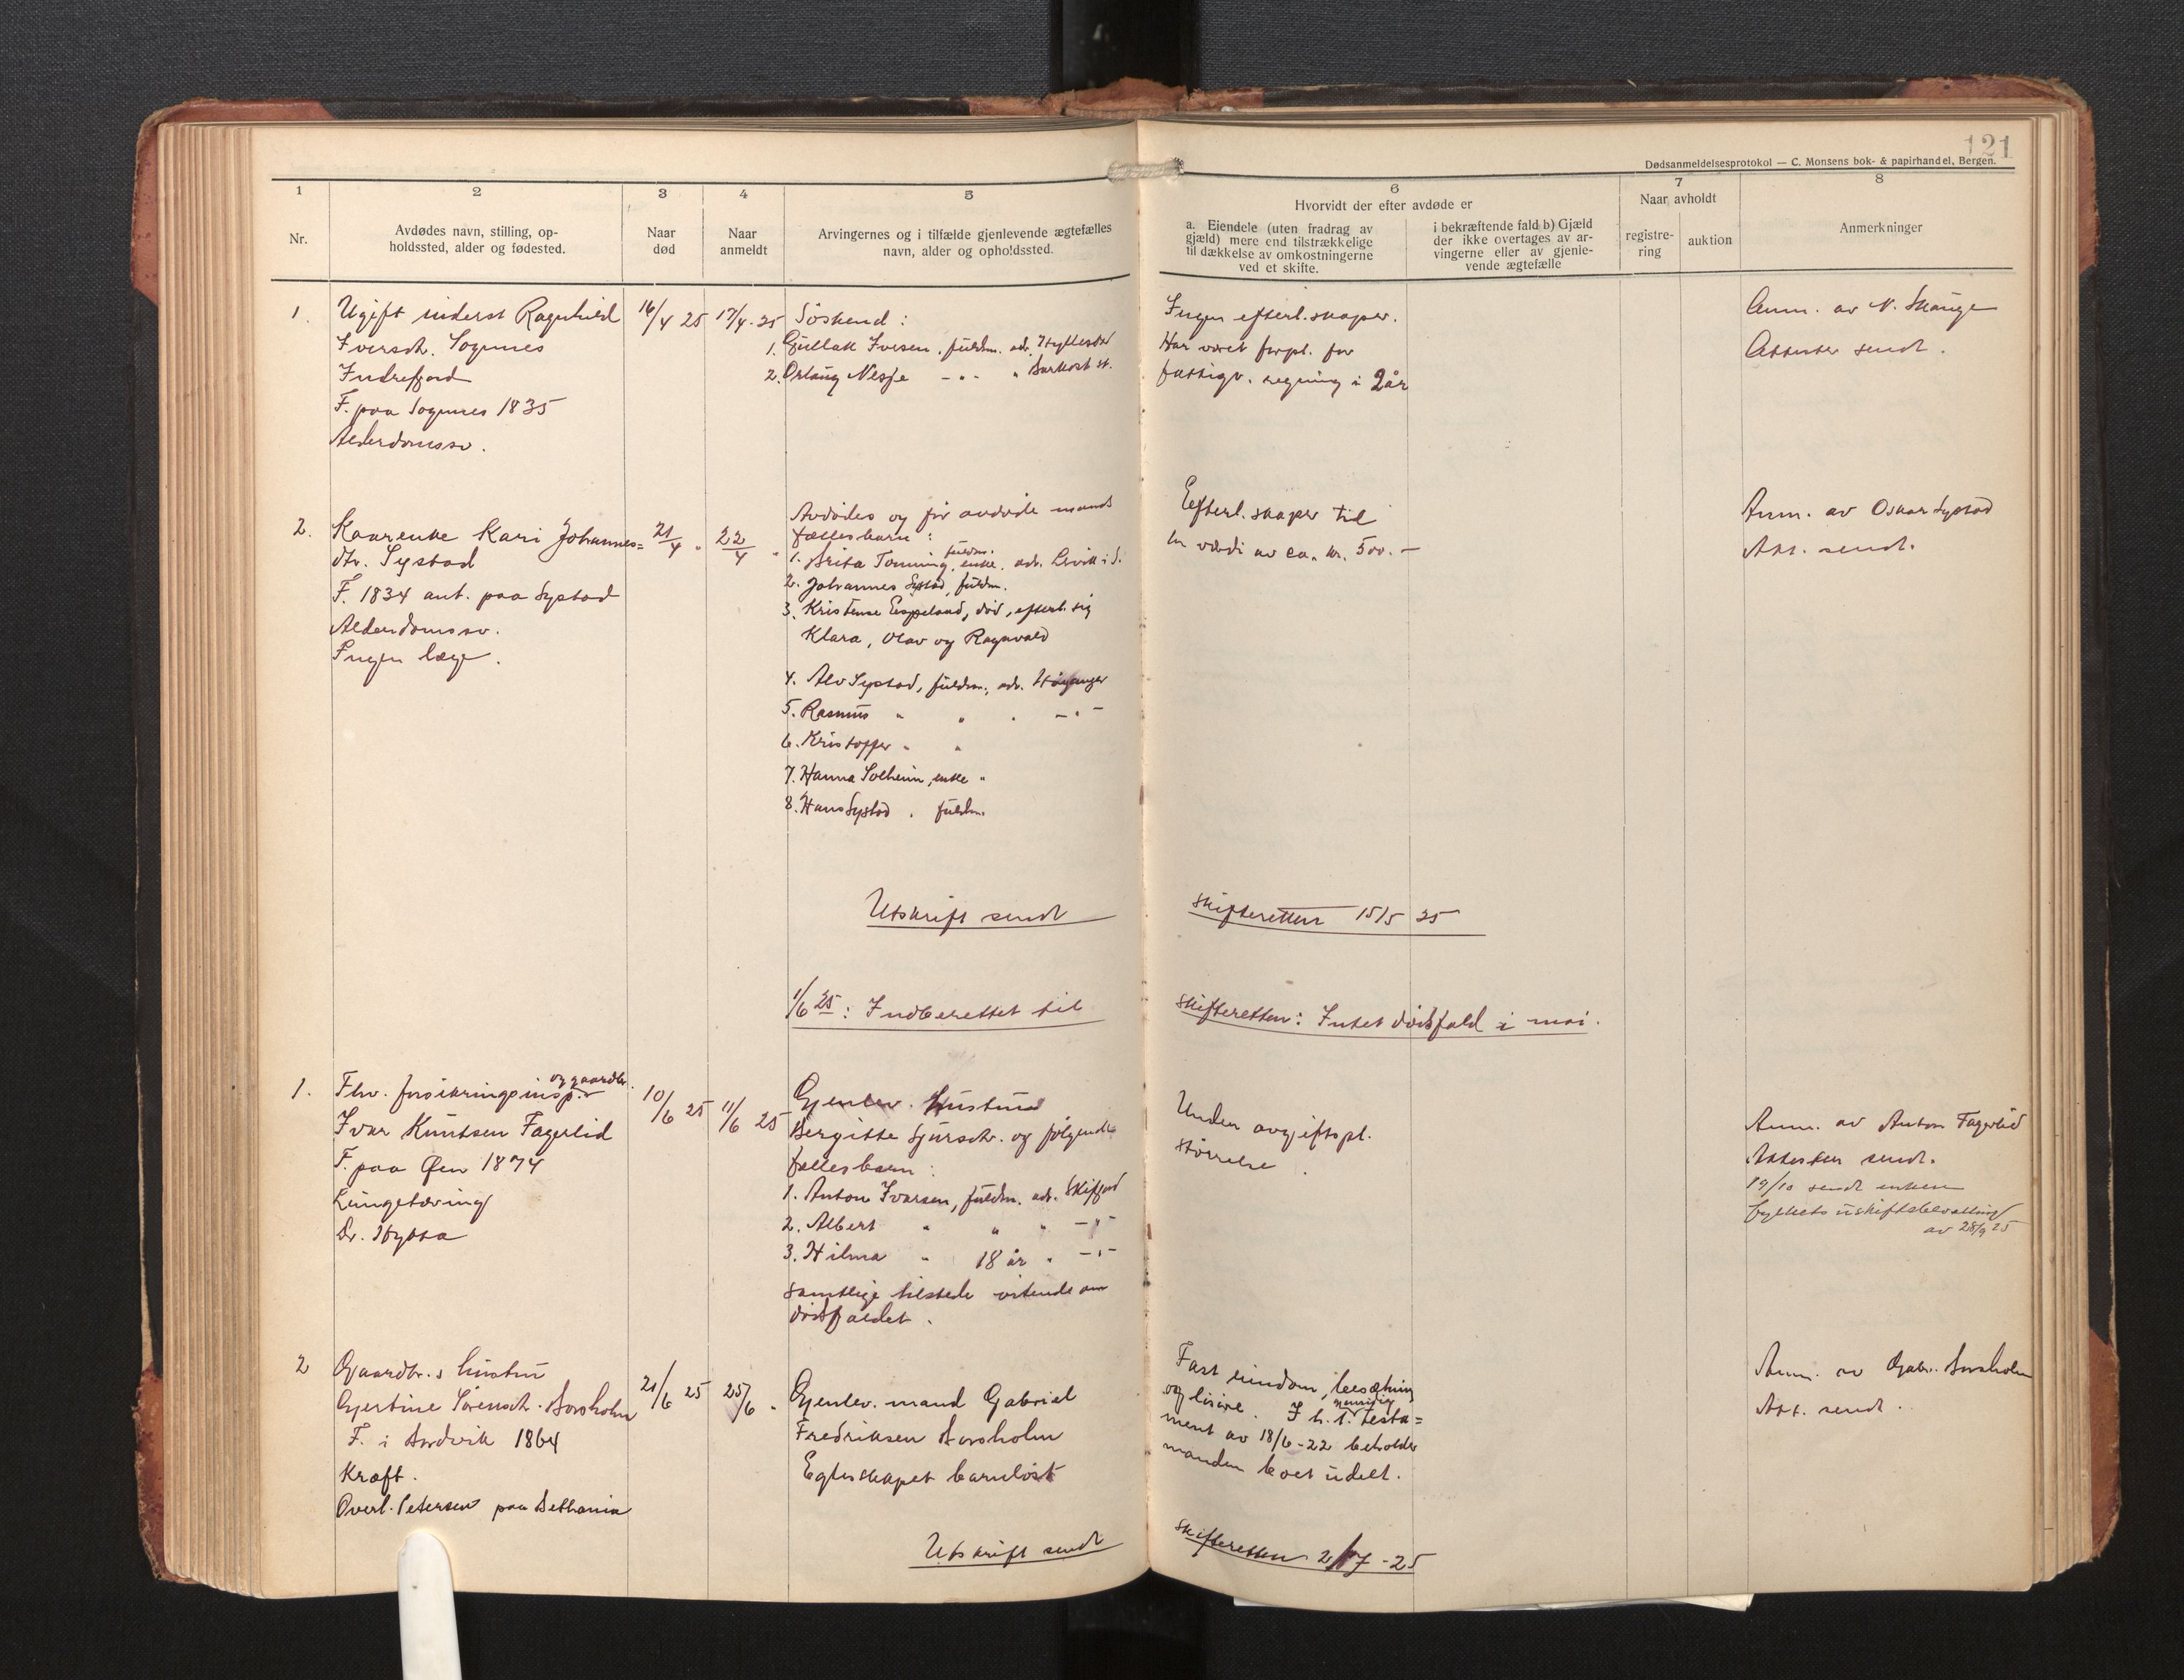 121
Dødsanmeldelsesprotokol — C. Monsens bok- & papirhandel, Bergen.
1
Nr.
2
Avdødes navn, stilling, op-
holdssted, alder og fødested.
3
Naar
død
4
Naar
anmeldt
5
Arvingernes og i tilfælde gjenlevende ægtefælles
navn, alder og opholdssted.
6
Hvorvidt der efter avdøde er
a. Eiendele (uten fradrag av
gjæld) mere end tilstrækkelige
til dækkelse av omkostningerne
ved et skifte.
i bekræftende fald b) Gjæld
der ikke overtages av ar-
vingerne eller av gjenle-
vende ægtefælle
7
Naar avholdt
registre-
ring
auktion
8
Anmerkninger
1. Ugift inderst Ragnhild
Iversdt. Sognnes
Indrefjord
F. paa Sognnes 1835
Alderdomssv.
16/4 25
17/4 - 25
Søskend:
1. Gullak Iversen, fuldm. adr. Hyllestad
2. Orlaug Nesje — " — "
Ingen efterl.skaper.
Har været forpl. for
fattigv. regning i 2 år
Anm. av N. Skauge
Attester sendt.
2. Kaarenke Kari Johannes=
dtr. Systad
F. 1834 ant. paa Systad
Alderdomssv.
Ingen læge.
21/4 "
22/4 "
Avdødes og før avdøde mands
fællesbarn:
1. Brita Tonning, enke, fuldm. adr. Levik i S.
2. Johannes Systad, fuldm.
3. Kristense Espeland, død, efterl. sig
Klara, Olav og Ragnvald
4. Alv Systad, fuldm., adr. Höyanger
5. Rasmus " " " — " —
6. Kristoffer " "
7. Hanna Solheim, enke "
8. Hans Systad, fuldm.
Eefterl.skaper til
en værdi av ca. kr. 500.—
Anm. av Oskar Systad
Att. sendt.
Utskrift sendt skifteretten 15/5 25
1/6 25: Indberettet til skifteretten: Intet dødsfald i mai.
1. Fhv. forsikringsinsp. og gaardbr.
Ivar Knutsen Fagerlid
F. paa Øen 1874
Lungetæring
Dr. Hytta
10/6 25
11/6 25
Gjenlev. Hustru
Bergitte Sjursdtr. og følgende
fællesbarn:
1. Anton Ivarsen, fuldm. adr. Skifjord
2. Albert " " " — " —
3. Hilma " 18 år " — " —
samtlige tilstede vitende om
dødsfaldet.
Under avgiftspl.
størrelse.
Anm. av Anton Fagerlid
Attesten sendt.
19/10 sendt enken
fylkets uskiftebevilling
av 28/9 25
2 Gaardbr.s hustru
Gjertine Sörensdt. Borsholm
F. i Bordvik 1864
Kræft.
Overl. Petersen paa Bethania
21/6 25
25/6 "
Gjenlev. mand Gabriel
Fredriksen Borsholm
Egteskapet barnløst
Fast eiendom, besætning
og lösöre. I h. t. gjensidig testa=
ment av 18/6 - 22 beholder
manden boet udelt.
Anm. av Gabr. Borsholm
Att. sendt.
Utskrift sendt skifteretten 2/7 - 25